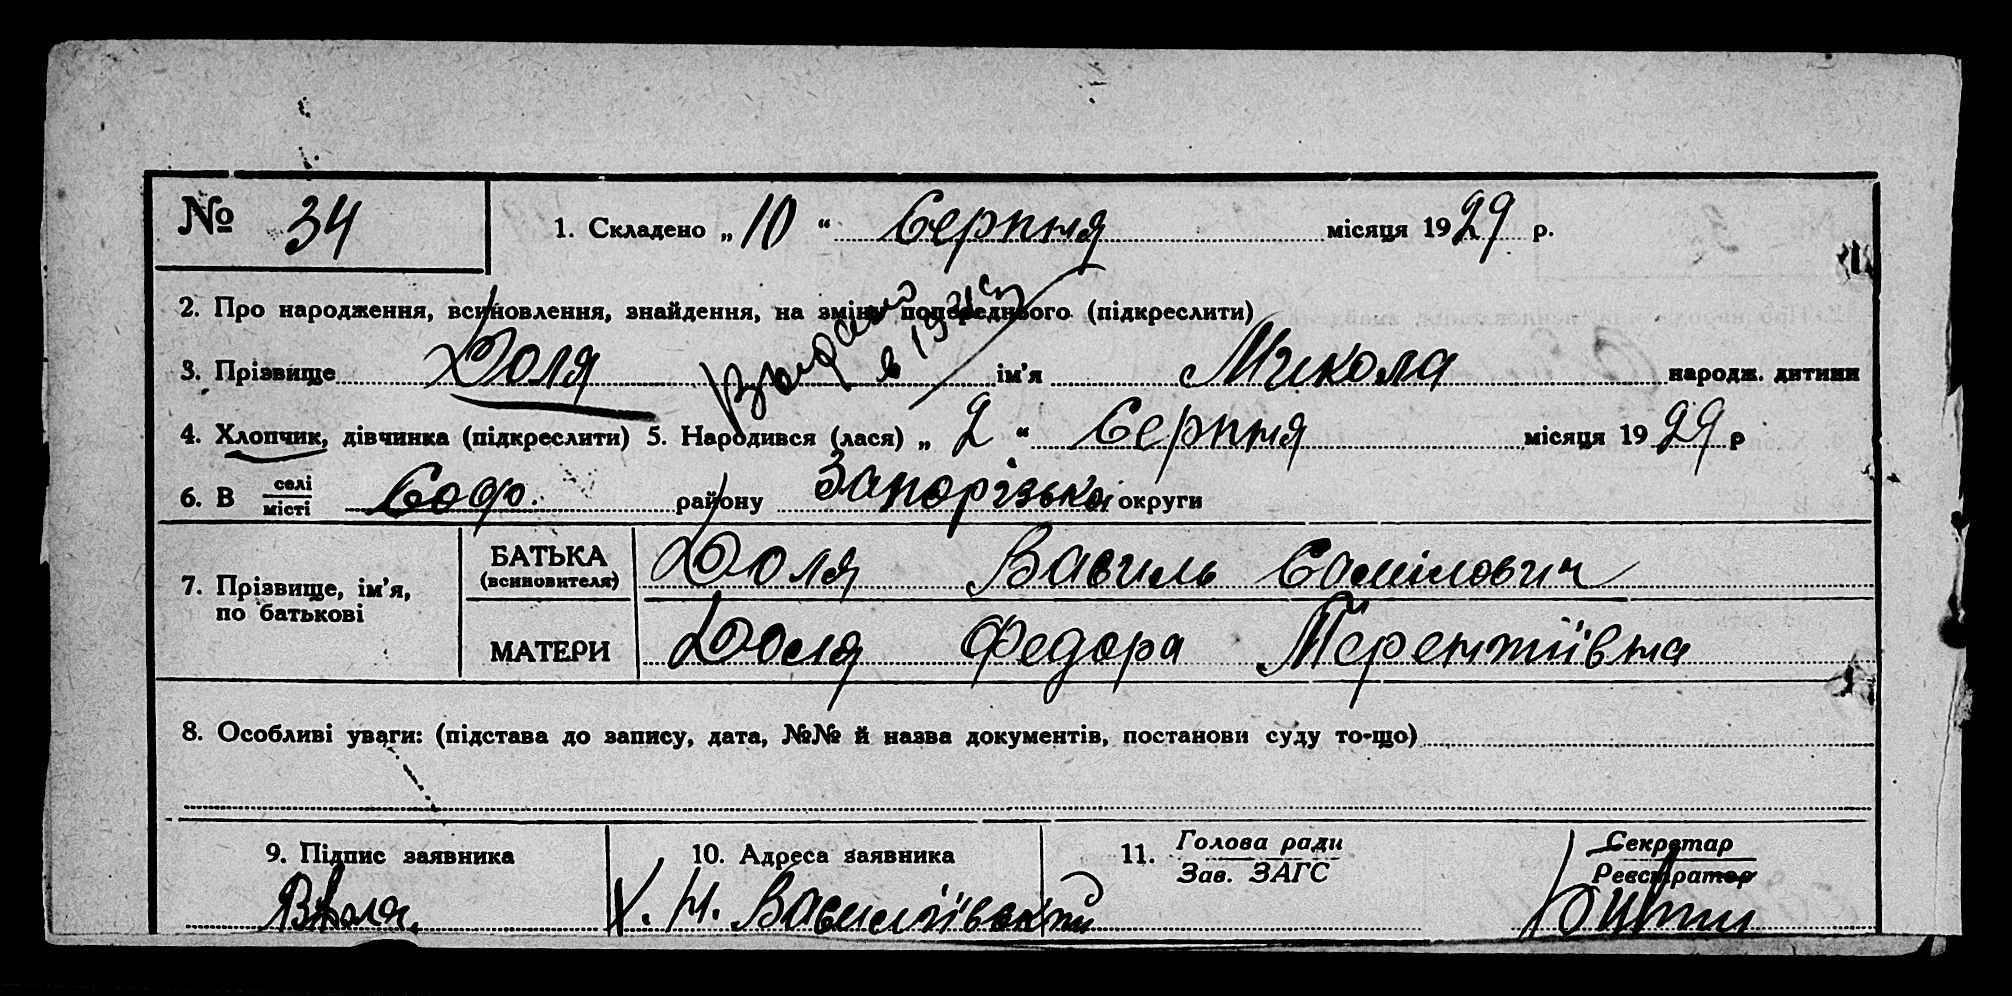 № 34 1. Складено „10“ Серпня місяця 1929 р.
2. Про народження, всиновлення, знайдення, на зміну попереднього (підкреслити)
3. Прізвище Доля ім'я Микола народж. дитини
4. Хлопчик, дівчинка (підкреслити) 5. Народився (лася) „2“ Серпня місяця 1929 р
6. В селі/місті Соф. району Запорізької округи
7. Прізвище, ім'я, по батькові
БАТЬКА (всиновителя) Доля Василь Самілович
МАТЕРИ Доля Федора Терентіївна
8. Особливі уваги: (підстава до запису, дата, №№ й назва документів, постанови суду то-що)
9. Підпис заявника 10. Адреса заявника 11. Голова ради Секретар
Зав. ЗАГС Реєстратор
ВДоля. Х. Н. Василівський